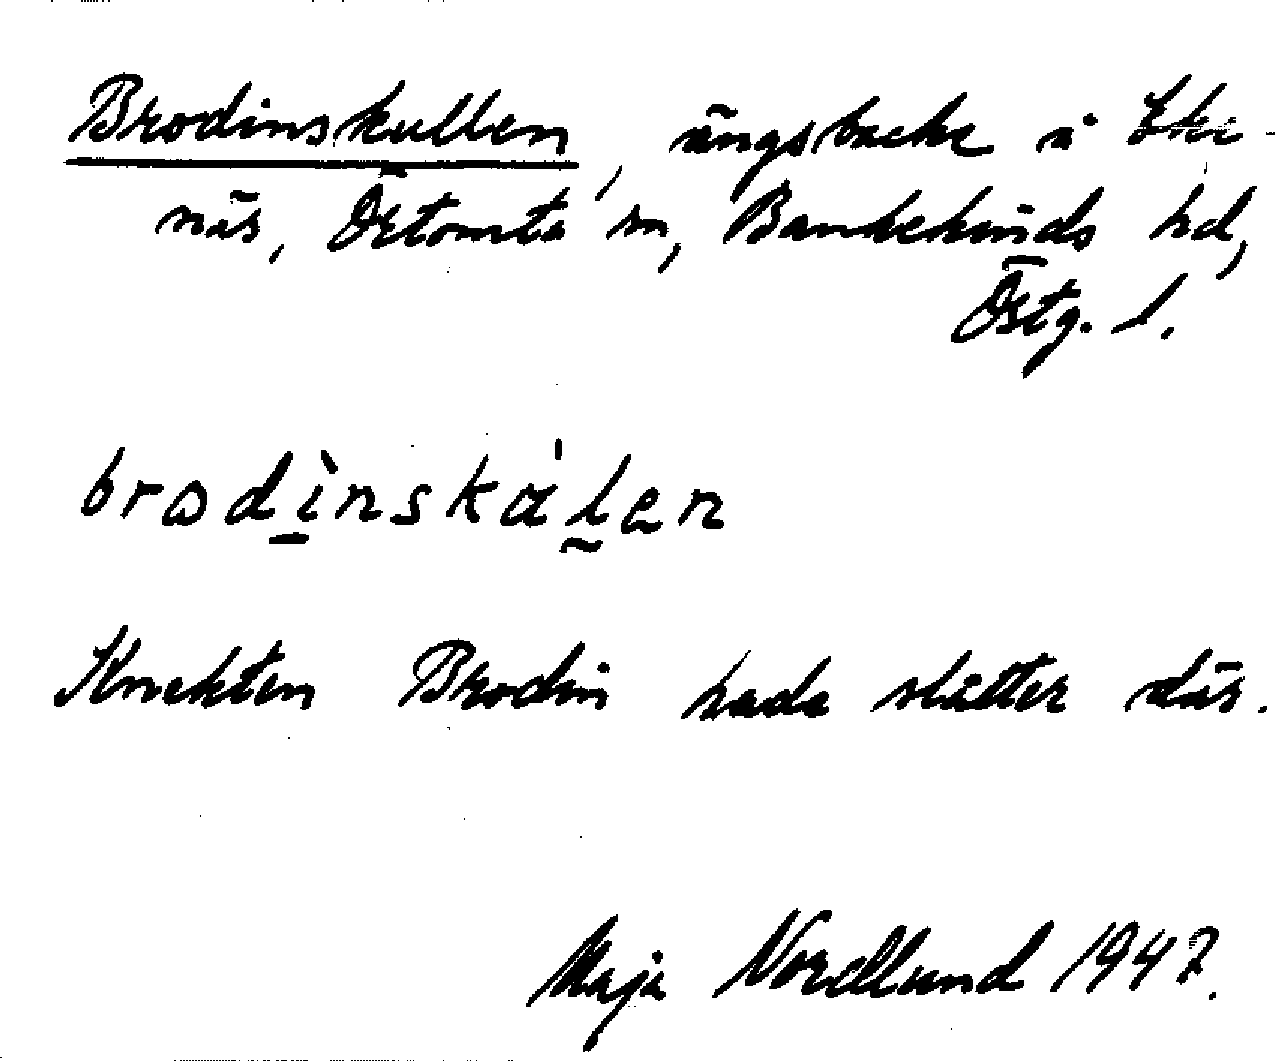 Brodinskullen, ängsbacke å Eke-
näs, Örtomta sn, Bankekinds hd,
Östg. l.
brodìnskálen
Knekten Brodin hade slåtter där.
Maja Nordlund 1947.